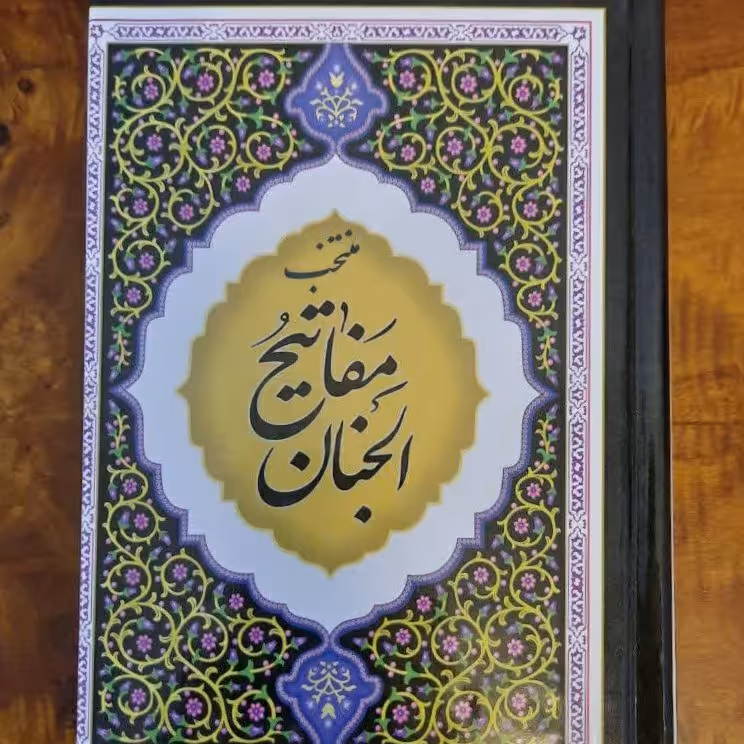 منتخب
مفاتیحُ
الجِنان